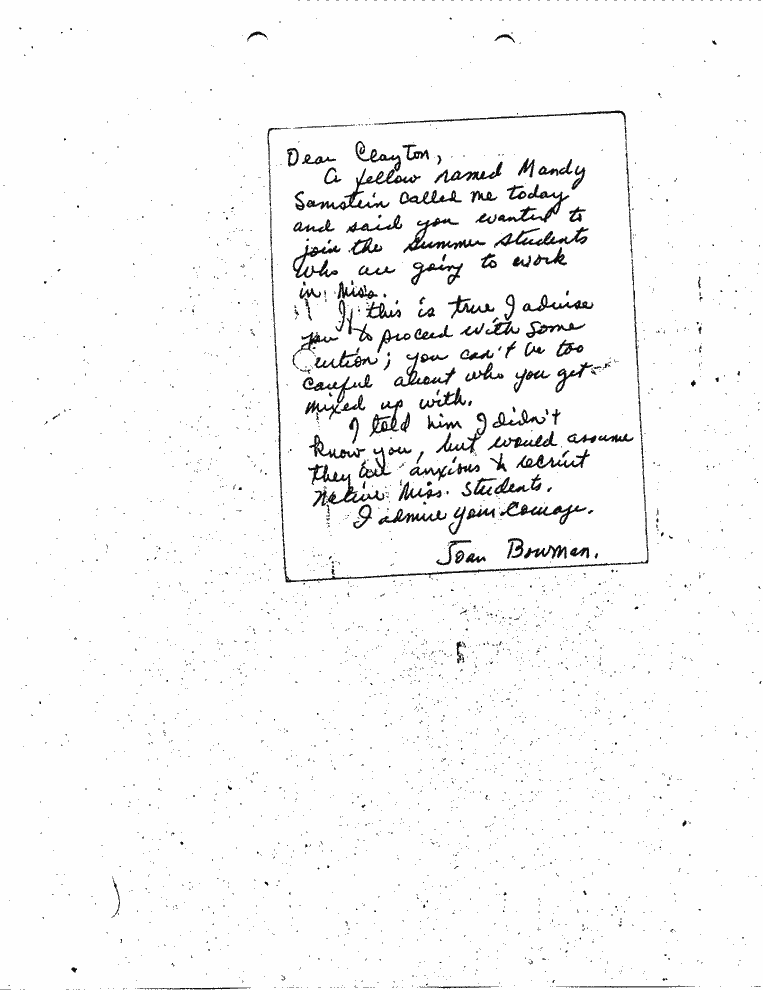 Dear Clayton,
A fellow named Mandy
Samstein called me today
and said you wanted to
join the summer students
who are going to work
in Miss.
If this is true I advise
you to proceed with some
Caution; you can't be too
careful about who you get
mixed up with.
I told him I didn't
know you, but would assume
they are anxious to recruit
Native Miss. Students.
I admire your courage.
Joan Bowman.